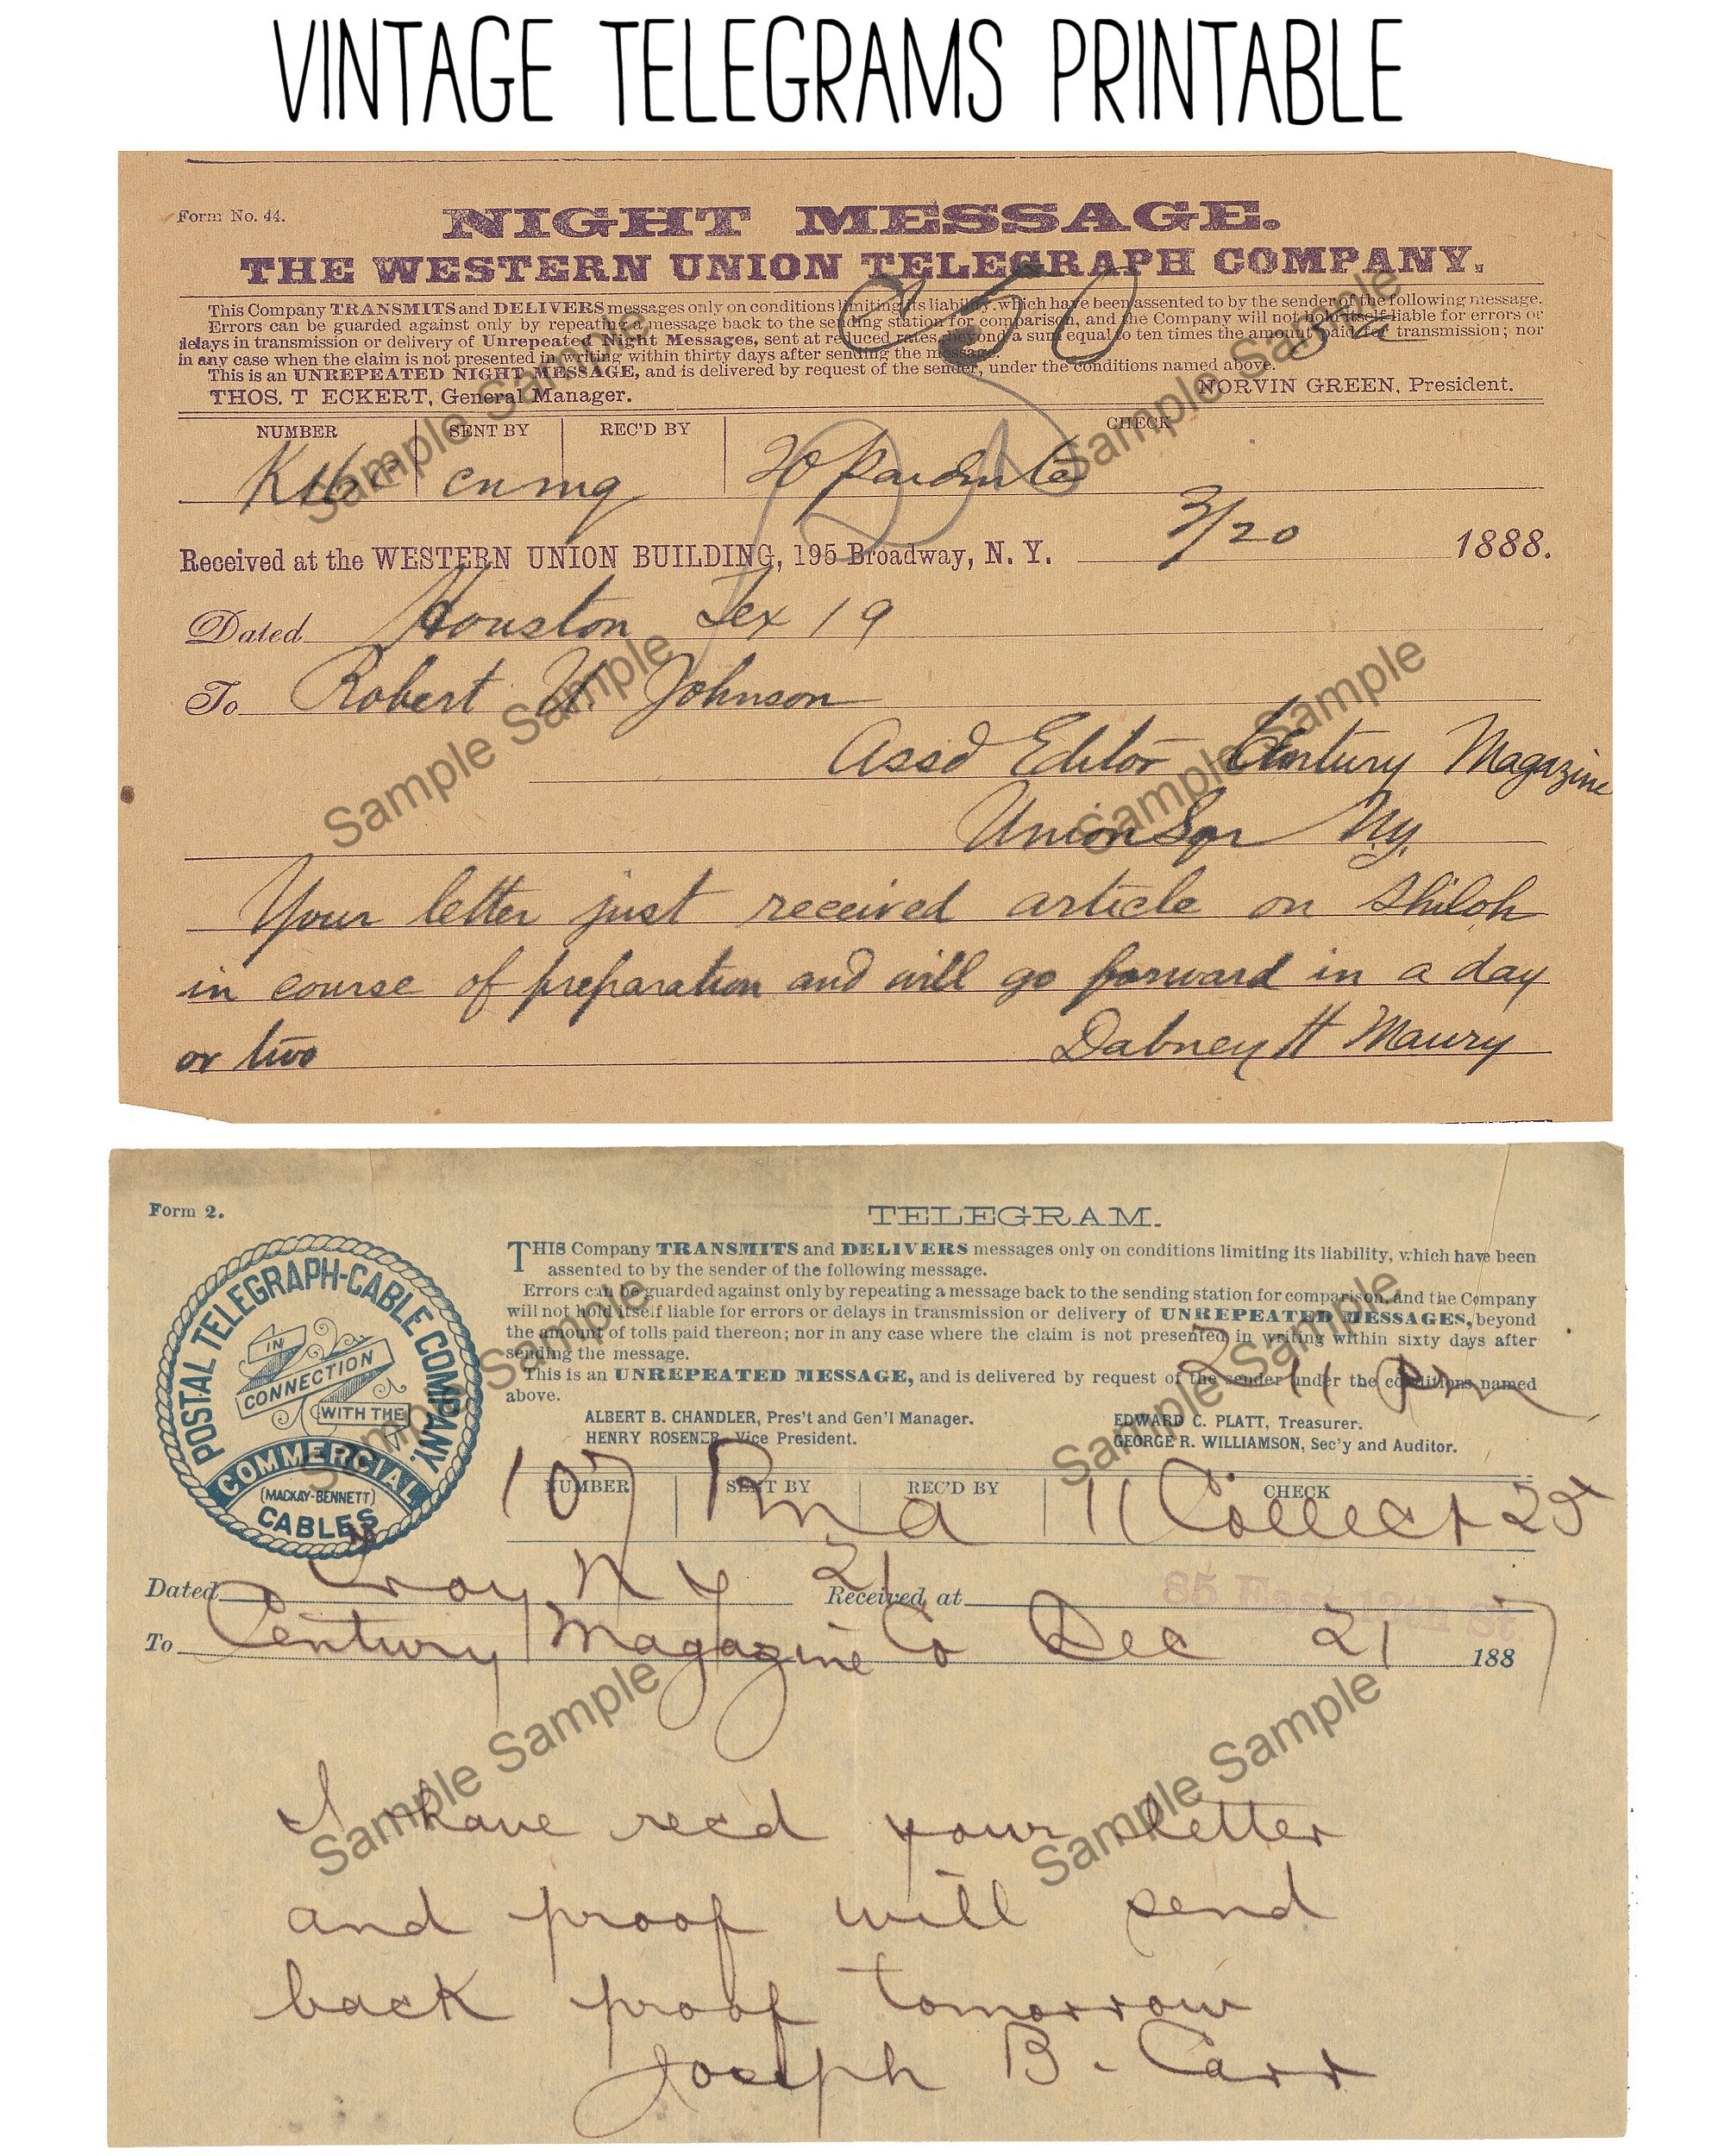 VINTAGE TELEGRAMS PRINTABLE
Form No. 44.
NIGHT MESSAGE.
THE WESTERN UNION TELEGRAPH COMPANY.
This Company TRANSMITS and DELIVERS messages only on conditions limiting its liability, which have been assented to by the sender of the following message.
Errors can be guarded against only by repeating a message back to the sending station for comparison, and the Company will not hold itself liable for errors or
delays in transmission or delivery of Unrepeated Night Messages, sent at reduced rates, beyond a sum equal to ten times the amount paid for transmission; nor
in any case when the claim is not presented in writing within thirty days after sending the message.
This is an UNREPEATED NIGHT MESSAGE, and is delivered by request of the sender, under the conditions named above.
THOS. T ECKERT, General Manager. NORVIN GREEN, President.
NUMBER SENT BY REC'D BY CHECK
20 Paid
Received at the WESTERN UNION BUILDING, 195 Broadway, N. Y. 3/20 1888.
Dated Houston Tex 19
To Robert U. Johnson
Assd Editor Century Magazine
Union Sqr N.y.
Your letter just received article on Shiloh
in course of preparation and will go forward in a day
or two Dabney H Maury
Form 2.
TELEGRAM.
POSTAL TELEGRAPH-CABLE COMPANY.
IN
CONNECTION
WITH THE
COMMERCIAL
(MACKAY-BENNETT)
CABLES
THIS Company TRANSMITS and DELIVERS messages only on conditions limiting its liability, which have been
assented to by the sender of the following message.
Errors can be guarded against only by repeating a message back to the sending station for comparison, and the Company
will not hold itself liable for errors or delays in transmission or delivery of UNREPEATED MESSAGES, beyond
the amount of tolls paid thereon; nor in any case where the claim is not presented in writing within sixty days after
sending the message.
This is an UNREPEATED MESSAGE, and is delivered by request of the sender under the conditions named
above.
211 Pm
ALBERT B. CHANDLER, Pres't and Gen'l Manager. EDWARD C. PLATT, Treasurer.
HENRY ROSENER, Vice President. GEORGE R. WILLIAMSON, Sec'y and Auditor.
NUMBER SENT BY REC'D BY CHECK
107 Rm a 11 Collect 25
Dated Troy N Y 21 Received at
To Century Magazine Co Dec 21 1887
I have recd your letter
and proof will send
back proof tomorrow
Joseph B. Carr
Sample Sample
Sample Sample
Sample Sample
Sample Sample
Sample Sample
Sample Sample
Sample Sample
Sample Sample